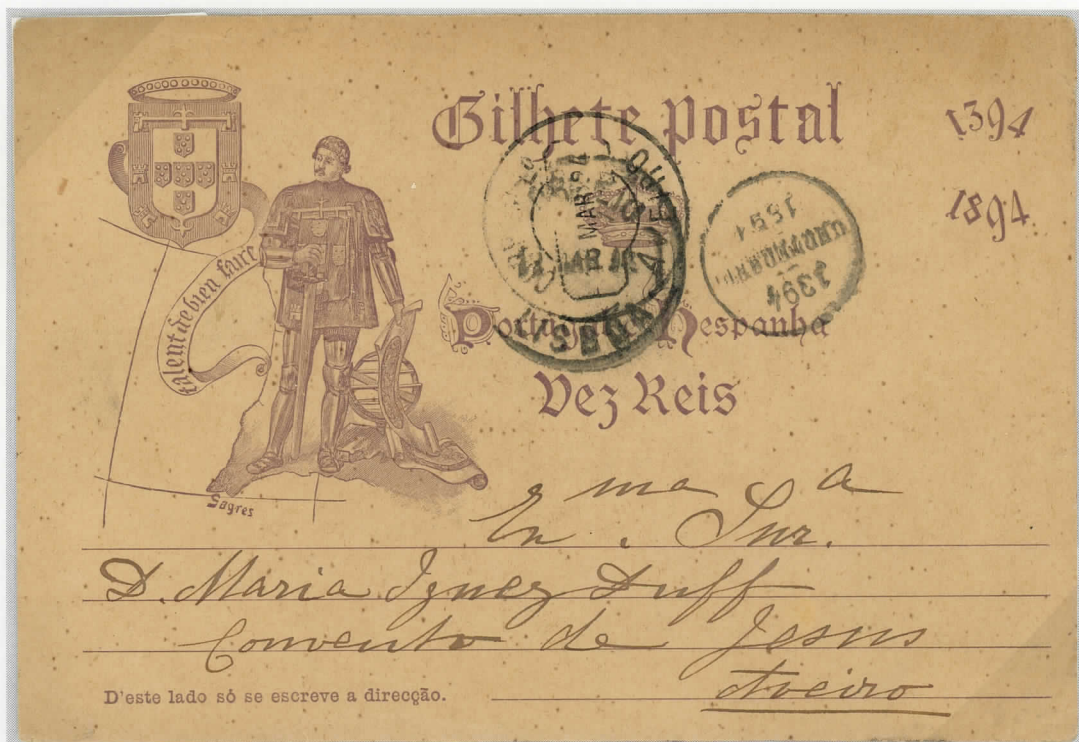 Bilhete postal
1394
1894
talent de bien faire
Portugal Hespanha
Dez Reis
Sagres
1394
1894
MAR
LISBOA
AVEIRO
Exma Snra.
D. Maria Ignez Duff
Convento de Jesus
Aveiro
D'este lado só se escreve a direcção.